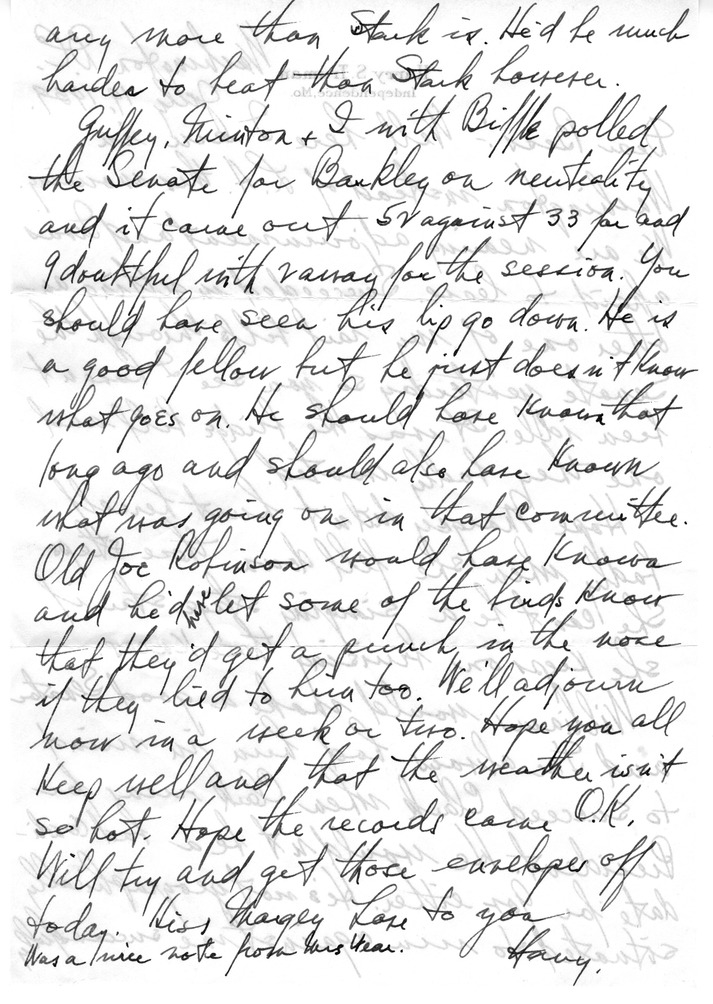 any more than Stark is. He'd be much
harder to beat than Stark however.
Guffey, Minton + I with Biffle polled
the Senate for Barkley on neutrality
and it came out 52 against 33 for and
9 doubtful with 2 away for the session. You
should have seen his lip go down. He is
a good fellow but he just doesn't know
what goes on. He should have known that
long ago and should also have known
what was going on in that committee.
Old Joe Robinson would have known
and he'd have let some of the birds know
that they'd get a punch in the nose
if they lied to him too. We'll adjourn
now in a week or two. Hope you all
keep well and that the weather isn't
so hot. Hope the records came O.K.
Will try and get those envelopes off
today. Kiss Margey Love to you
Was a nice note from Mrs Wear. Harry.